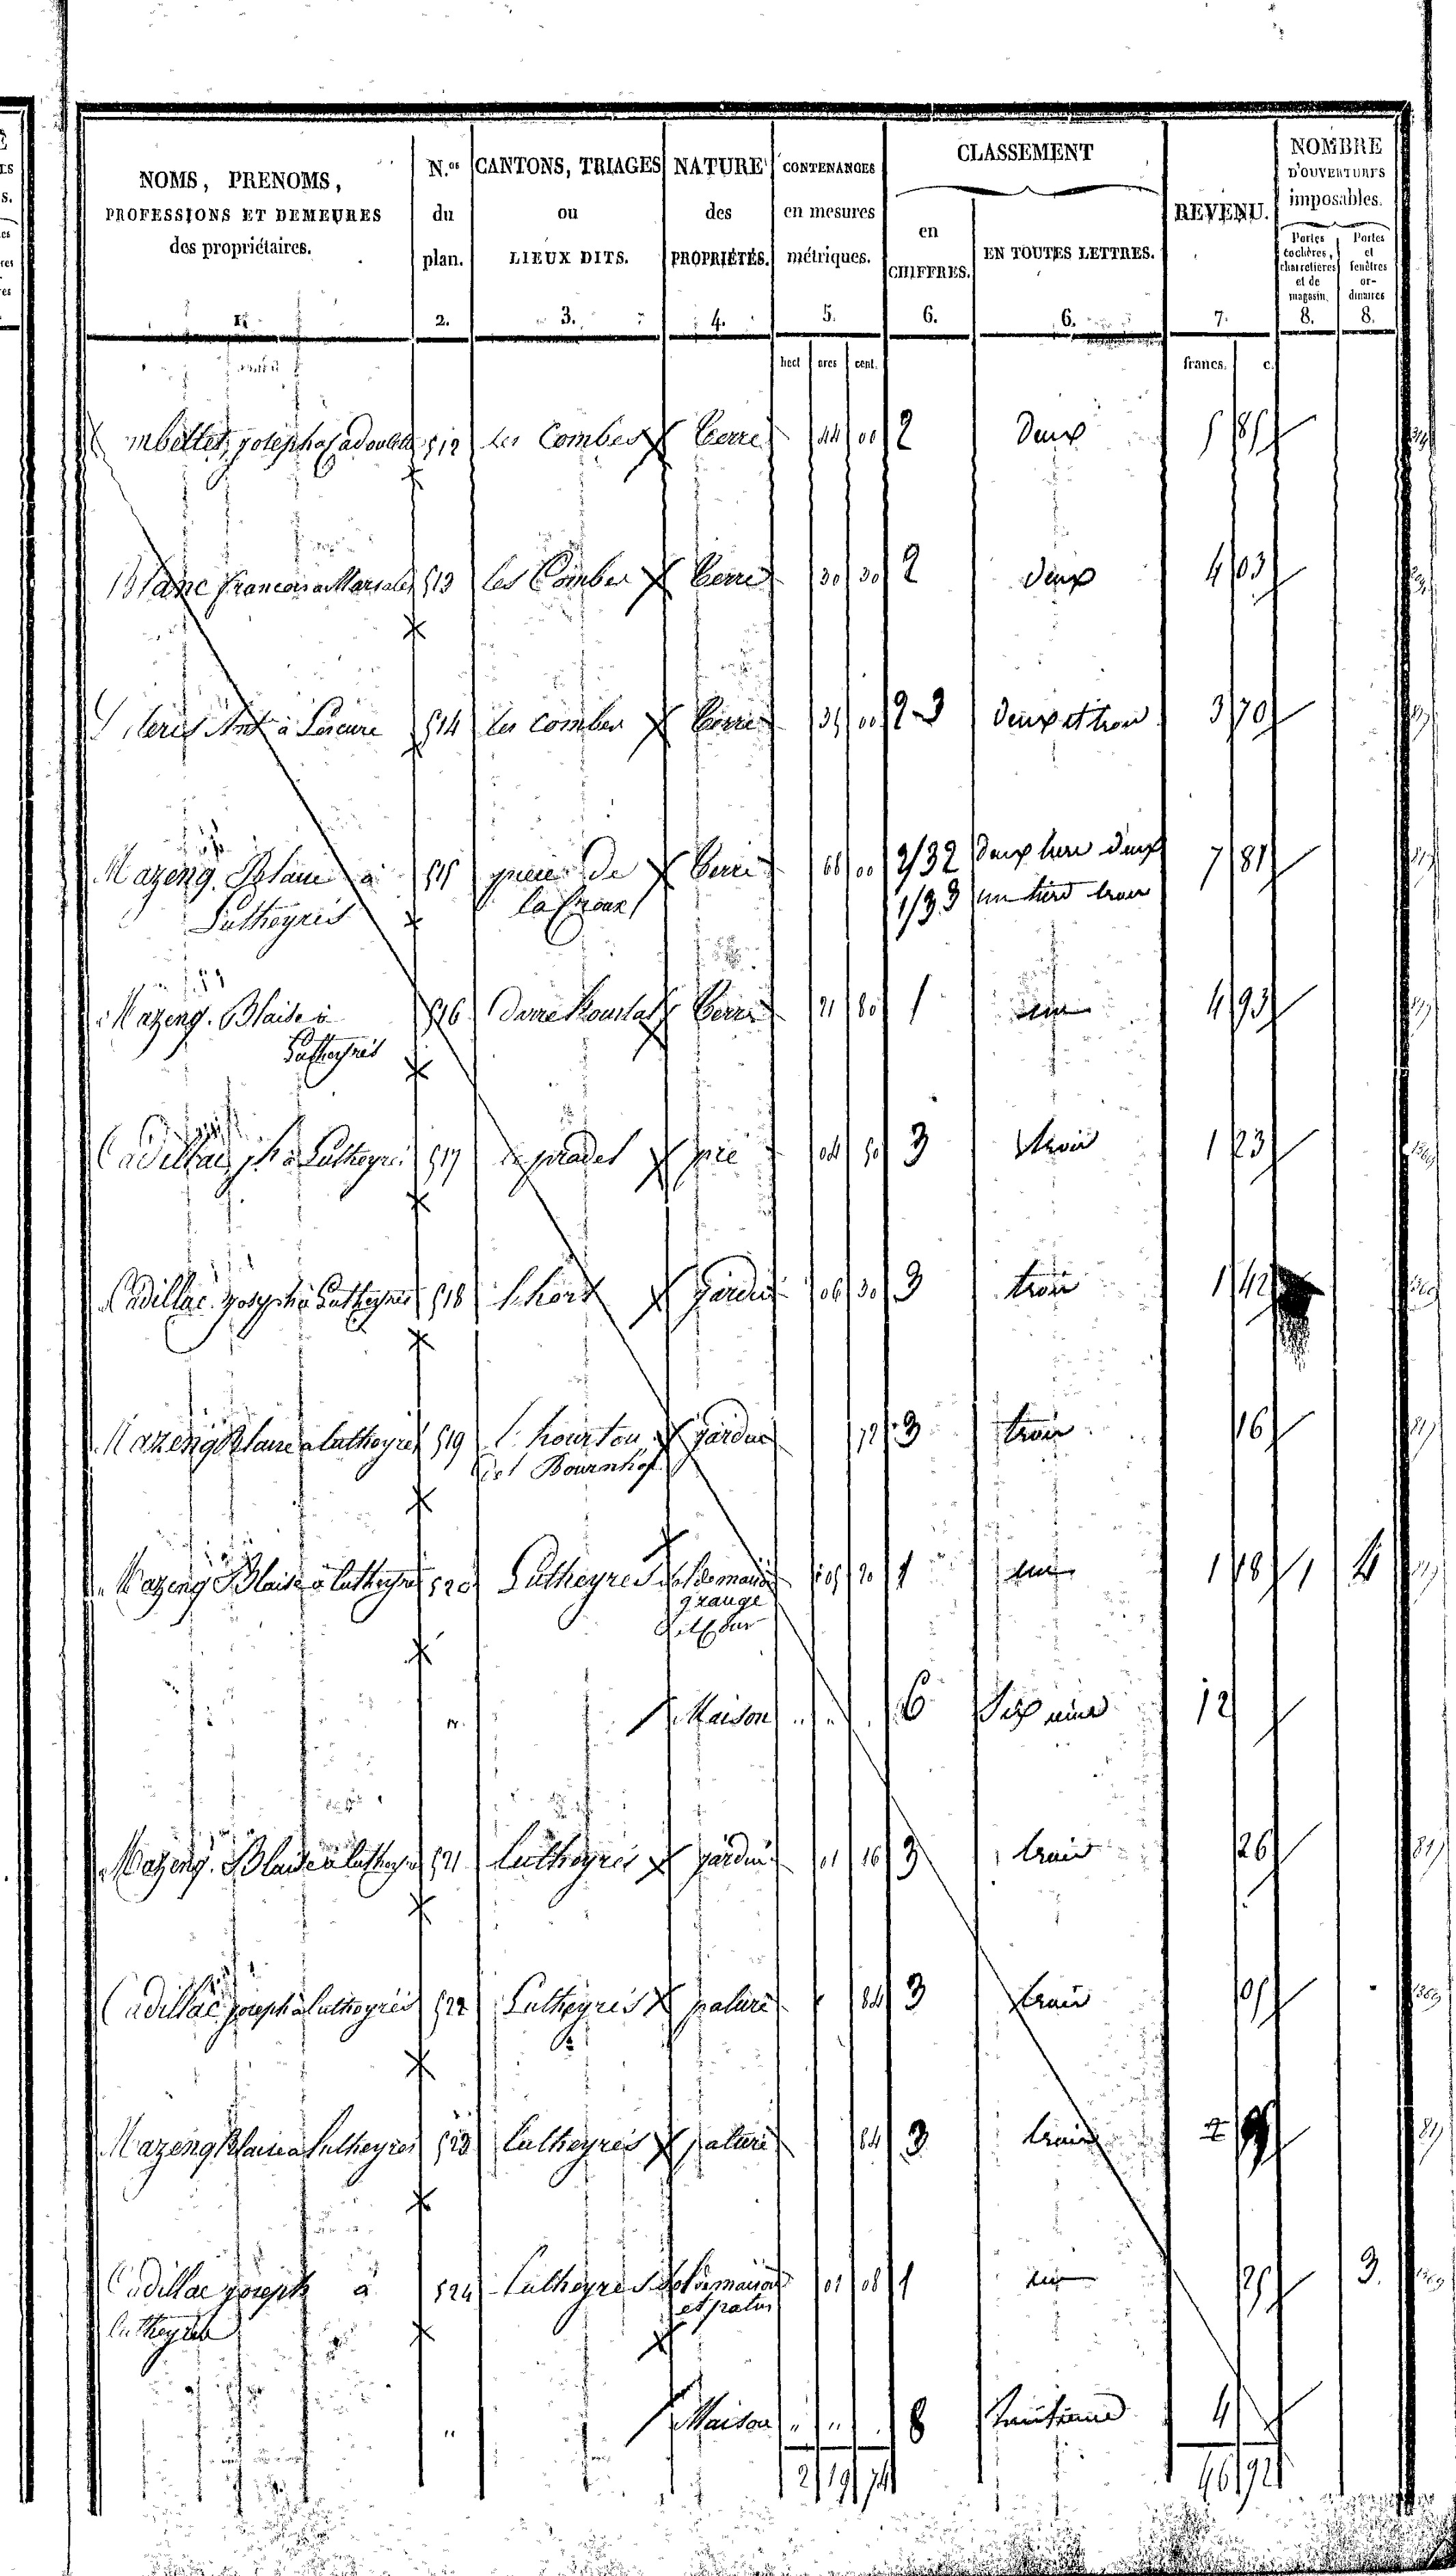 NOMS, PRENOMS, PROFESSIONS ET DEMEURES des propriétaires. 1. | N.os du plan. 2. | CANTONS, TRIAGES ou LIEUX DITS. 3. | NATURE des PROPRIÉTÉS. 4. | CONTENANCES en mesures métriques. 5. | CLASSEMENT en CHIFFRES. 6. | EN TOUTES LETTRES. 6. | REVENU. 7. | NOMBRE D'OUVERTURES imposables. Portes cochères, charretières et de magasin. 8. | Portes et fenêtres ordinaires 8.
hect ares cent. francs. c.
mbettet, joseph a Cadoulette 512 Les Combes terre 44 00 2 deux 5 85
Blanc francois a Marsales 513 les Combes terre 30 30 2 deux 4 03
Ant à 514 les combes terre 35 00 2-3 deux et trois 3 70
Mazeng. Blaise à 515 de terre 66 00 2/3 2 deux tiers deux 7 81
Lutheyrés la Croux 1/3 3 un tiers trois
Mazeng. Blaise à 516 Darre terre 21 80 1 un 4 93
Lutheyrés
Cadillac jh à Lutheyrés 517 le pradel pré 04 50 3 trois 1 23
Cadillac joseph à Lutheyrés 518 l'hort jardin 06 30 3 trois 1 42
Mazeng Blaise a lutheyrés 519 l'hourtou jardin 72 3 trois 16
del Bournhof
Mazeng Blaise à lutheyres 520 Lutheyres sol de maison 05 20 1 un 1 18 1 4
grange
et cour
Maison .. .. 6 Sixieme 12
Mazeng. Blaise a lutheyres 521 lutheyrés jardin 01 16 3 trois 26
Cadillac joseph à lutheyrés 522 Lutheyrés pature 84 3 trois 05
Mazeng Blaise a Lutheyres 523 lutheyrés pature 84 3 trois 05
Cadillac joseph à 524 Lutheyres sol de maison 01 08 1 un 25 3.
lutheyres et patus
" Maison " " 8 huitieme 4
2 19 74 46 92